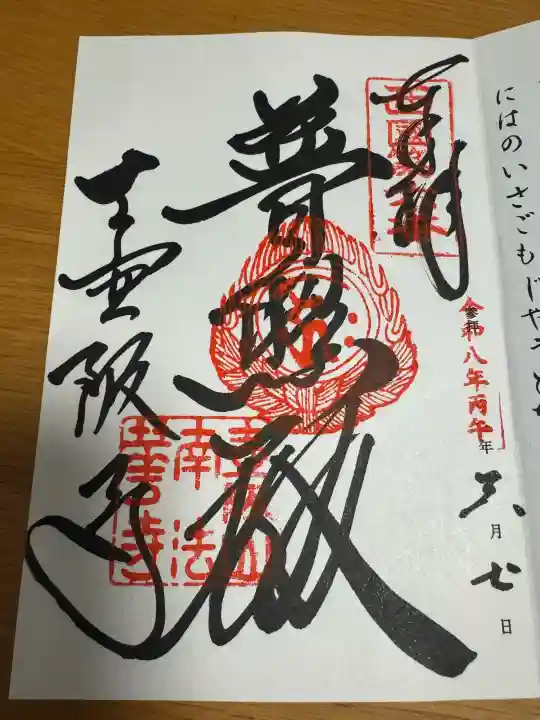 にはのいさごもじやうど
奉拝
西国第六番
令和八年丙午年三月七日
普照殿
壷阪寺
壷阪山
南法
華寺